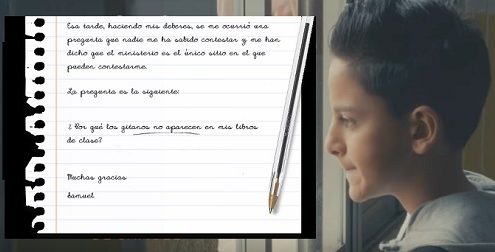 Esa tarde, haciendo mis deberes, se me ocurrió una
pregunta que nadie me ha sabido contestar y me han
dicho que el ministerio es el único sitio en el que
pueden contestarme.
La pregunta es la siguiente:
¿Por qué los gitanos no aparecen en mis libros
de clase?
Muchas gracias
Samuel